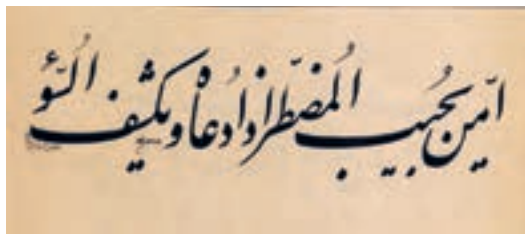 امّن یجُیب المُضطّر اذا دُعاهُ و یکشف السّوُء